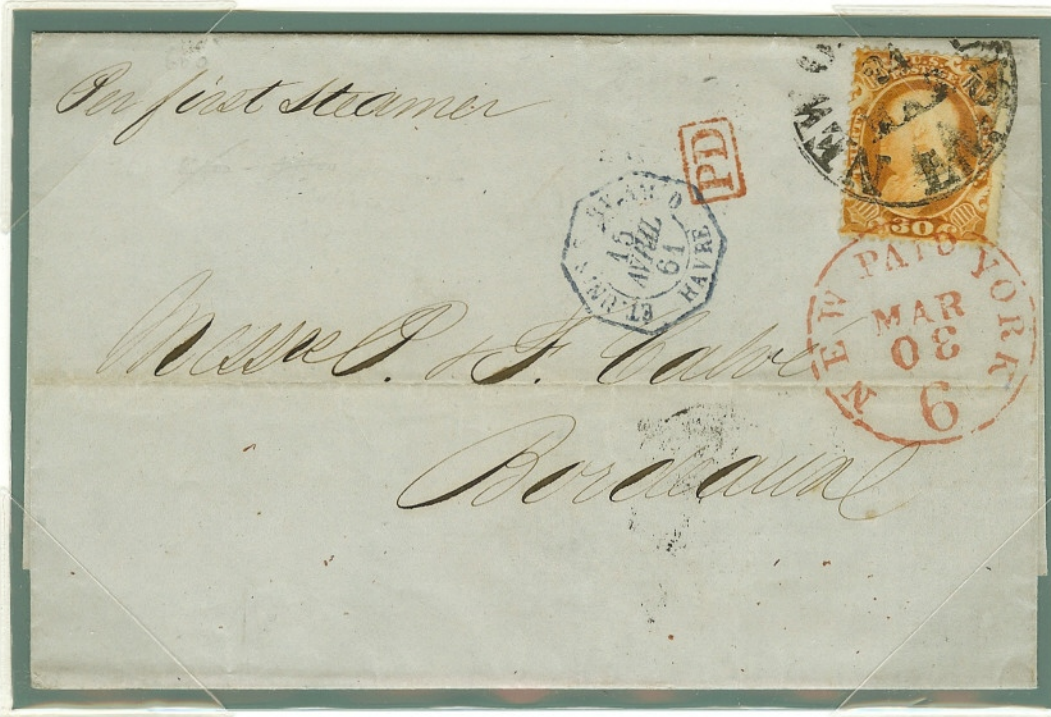 Per first Steamer
PD
30
ET. UNIS SV. AM. D HAVRE
15
AVRIL
61
NEW PAID YORK
MAR
08
6
Mess P. & F. Calvé
Bordeaux